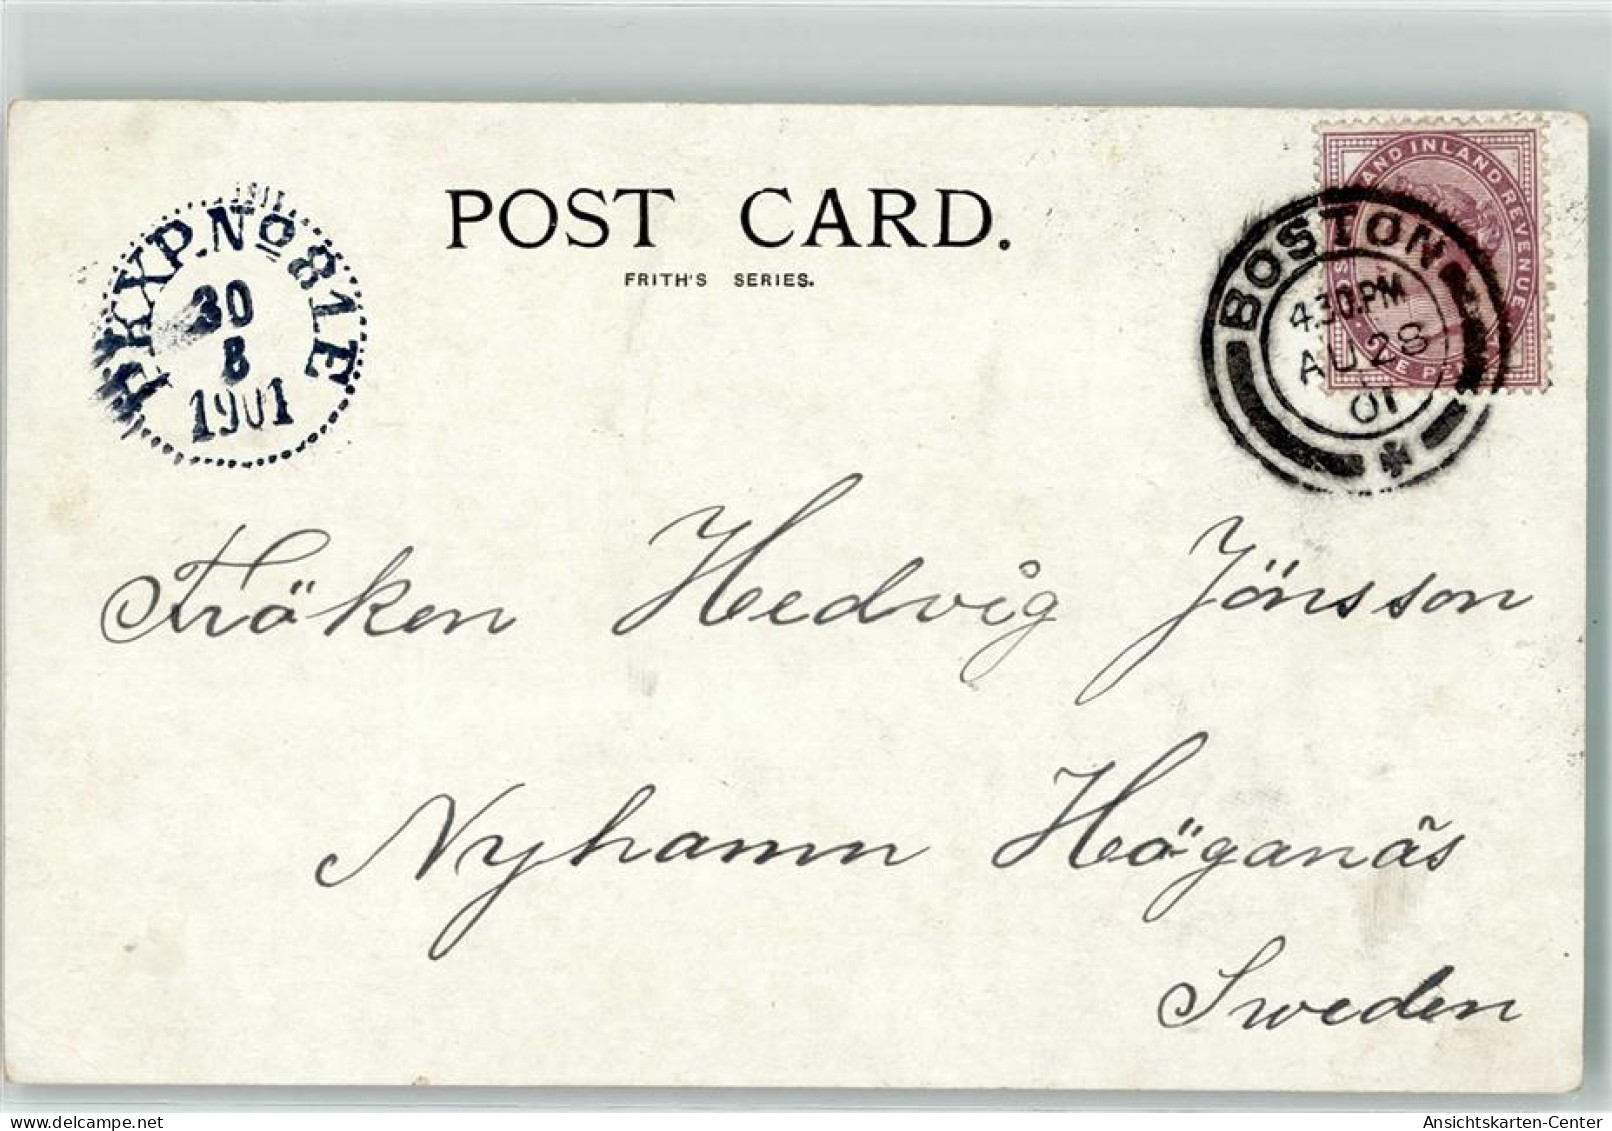 POST CARD.
FRITH'S SERIES.
PKXP. No 81 E
30
8
1901
AND INLAND REVENUE
BOSTON
4.30.PM
AU 28
01
Fröken Hedvig Jönsson
Nyhamn Höganäs
Sweden
www.delcampe.net
Ansichtskarten-Center